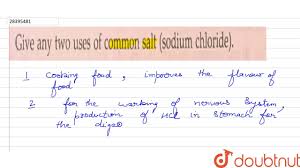 28395481
Give any two uses of common salt (sodium chloride).
1 Cooking food, improves the flavour of
food
2 for the working of nervous system,
production of HCl in stomach for
the diges
doubtnut